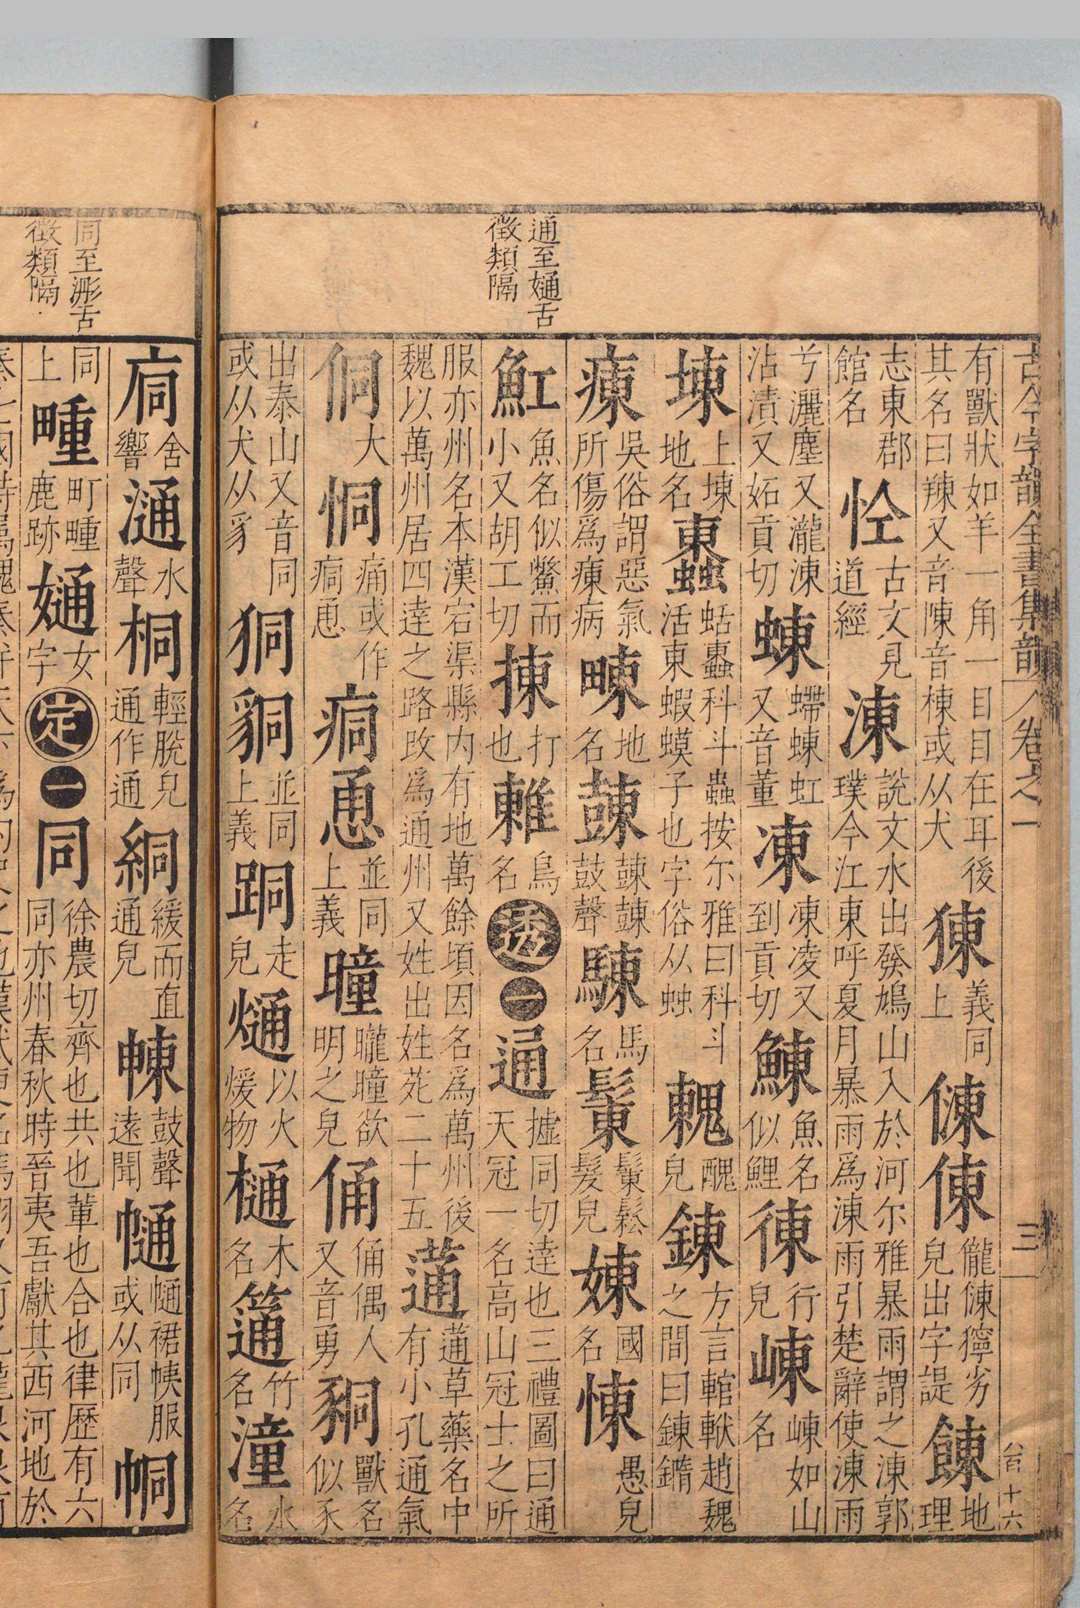 古今字韻全書集韻 卷之一 三 台十六
有獸狀如羊一角一目目在耳後其名曰䍶又音陳音棟或从犬 𤟘 義同上 㑈 倲 儱倲獰劣皃出字諟 餗 地理
志東郡館名 㤏 古文見道經 涷 說文水出發鳩山入於河尔雅暴雨謂之涷郭璞今江東呼夏月暴雨爲涷雨引楚辭使涷雨
兮灑塵又瀧涷沾漬又妬貢切 蝀 螮蝀虹又音董 凍 凍凌又到貢切 鯟 魚名似鯉 徚 行皃 崠 崠如山名
埬 上埬地名 蛞科斗蟲按尔雅曰科斗活東蝦蟆子也字俗从䖵 醜皃 錬 方言輨軑趙魏之間曰錬鐹
㾖 吳俗謂惡氣所傷爲㾖病 地名 鼓聲 駷 馬名 髮皃 娻 國名 愚皃
通至㛚舌徵類隔
魟 魚名似鱉而小又胡工切 揀 打也 鶇 鳥名 透 一 通 摅同切達也三禮圖曰通天冠一名高山冠士之所
服亦州名本漢宕渠縣内有地萬餘頃因名爲萬州後魏以萬州居四達之路改爲通州又姓出姓苑二十五 蓪 蓪草藥名中有小孔通氣
侗 大 恫 痛或作痌恿 痌 恿 並同上義 曈 曨曈欲明之皃 俑 俑偶人又音勇 獸名似豕
出泰山又音同或从犬从豸 狪 並同上義 走皃 熥 以火煖物 樋 木名 竹名 潼 水名
㢥 舍響 水聲 輕脫皃通作通 絧 緩而直通皃 鼓聲遠聞 㡏裙帙服或从同
同至浵舌徵類隔
同上 畽 町畽鹿跡 㛚 女字 定 一 同 徐農切齊也共也輩也合也律歷有六同亦州春秋時晉夷吾獻其西河地於